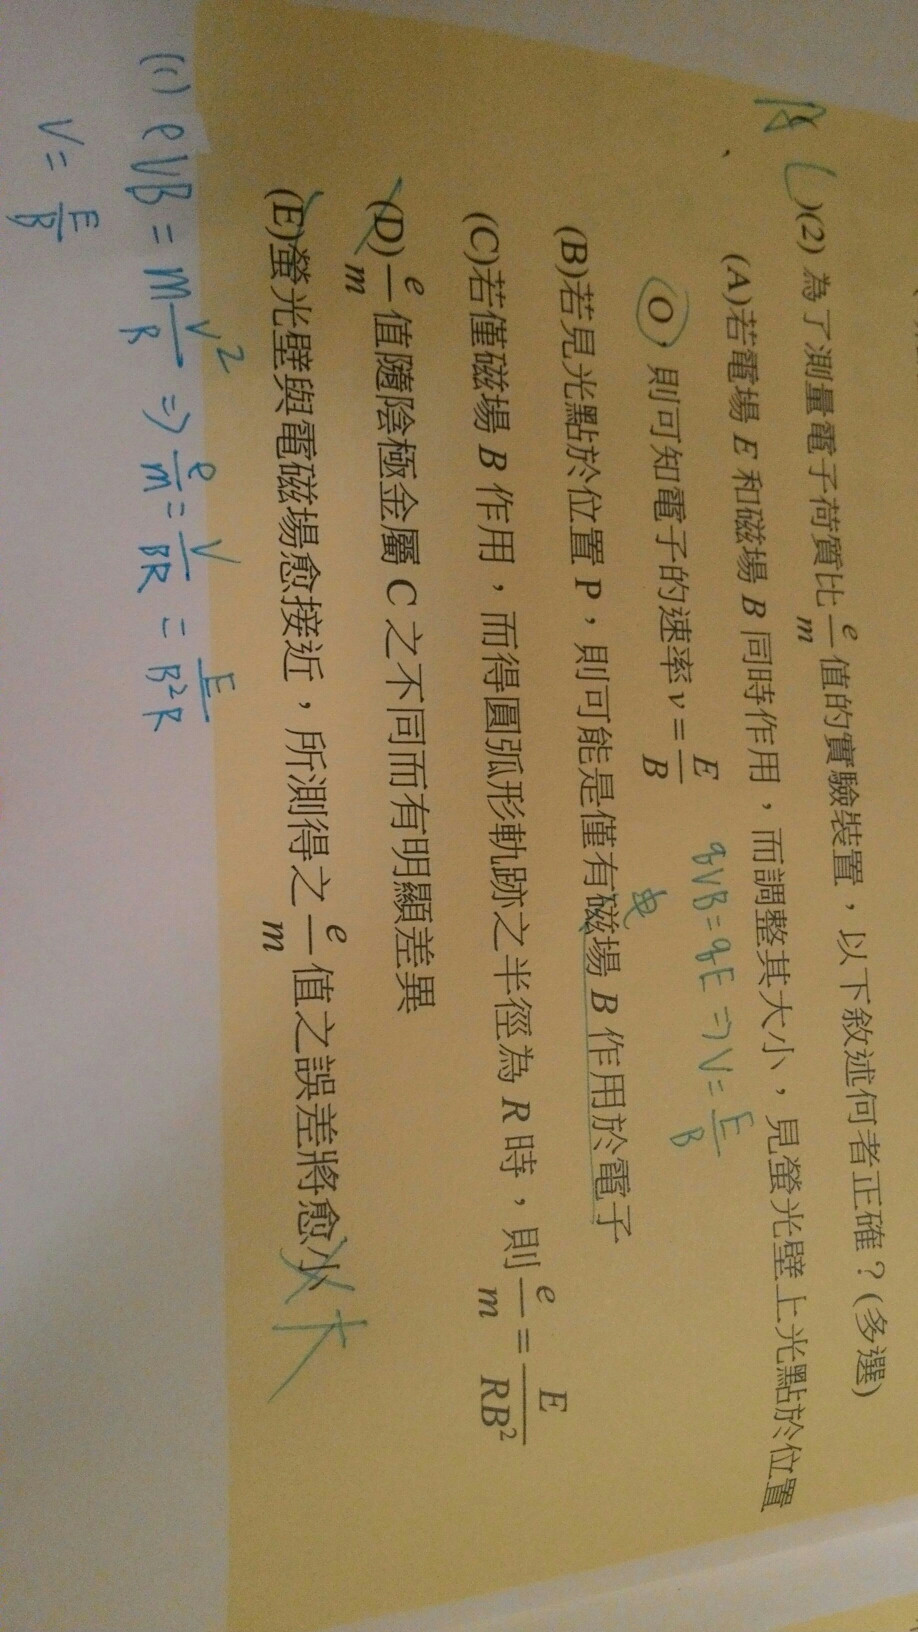 ( )(2) 為了測量電子荷質比 e/m 值的實驗裝置，以下敘述何者正確？(多選)
(A)若電場 E 和磁場 B 同時作用，而調整其大小，見螢光壁上光點於位置
O，則可知電子的速率 v = E/B
qVB = qE => V = E/B
(B)若見光點於位置 P，則可能是僅有磁場 B 作用於電子
電
(C)若僅磁場 B 作用，而得圓弧形軌跡之半徑為 R 時，則 e/m = E/RB²
(D) e/m 值隨陰極金屬 C 之不同而有明顯差異
(E)螢光壁與電磁場愈接近，所測得之 e/m 值之誤差將愈小
大
(c) eVB = m V²/R => e/m = V/BR = E/B²R
V = E/B